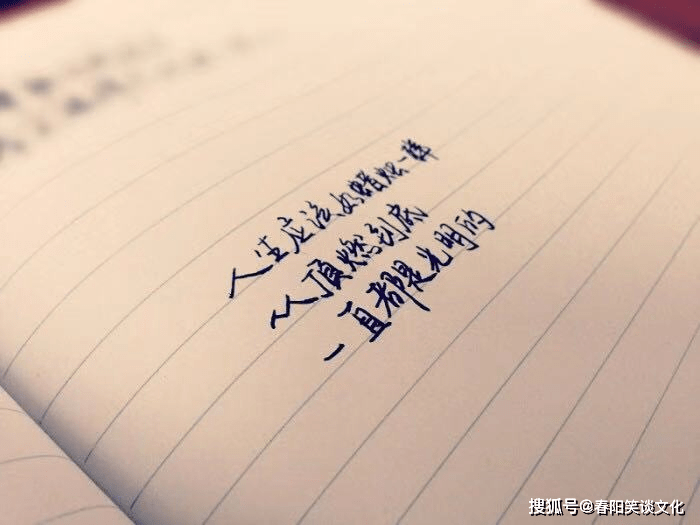 人生应该如蜡烛一样
从顶燃到底
一直都是光明的
搜狐号@春阳笑谈文化